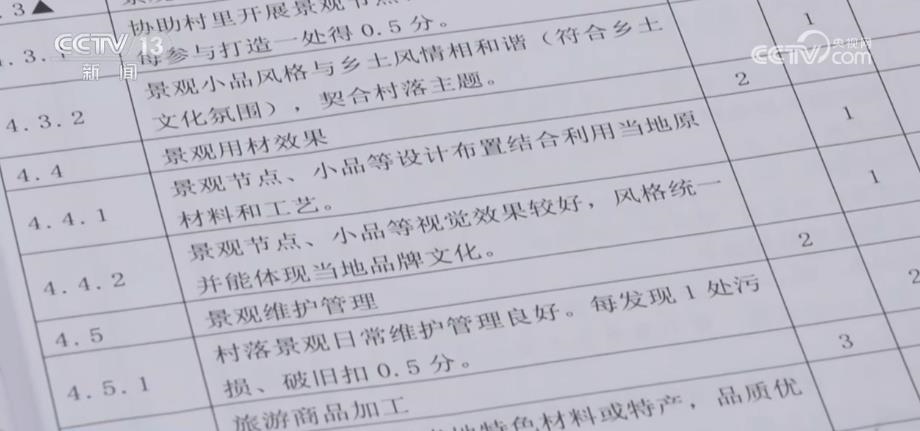 .3▲
协助村里开展景观节点
4.3.1
每参与打造一处得0.5分。
1
CCTV 13
新闻
央视网
CCTV.com
4.3.2
景观小品风格与乡土风情相和谐（符合乡土
文化氛围），契合村落主题。
1
4.4
景观用材效果
2
4.4.1
景观节点、小品等设计布置结合利用当地原
材料和工艺。
1
4.4.2
景观节点、小品等视觉效果较好，风格统一
并能体现当地品牌文化。
1
4.5
景观维护管理
2
4.5.1
村落景观日常维护管理良好。每发现1处污
损、破旧扣0.5分。
2
旅游商品加工
3
地特色材料或特产，品质优